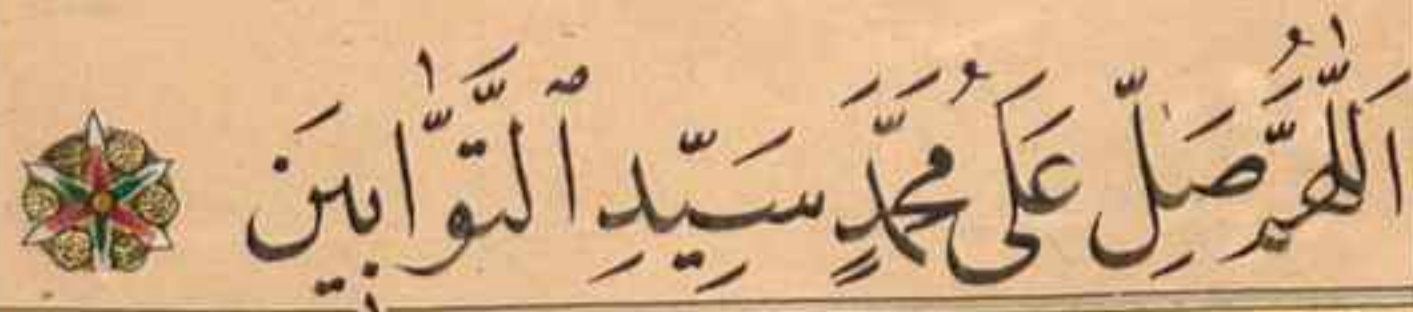 اَللّٰهُمَّ صَلِّ عَلَى مُحَمَّدٍ سَيِّدِ ٱلتَّوَّابِينَ